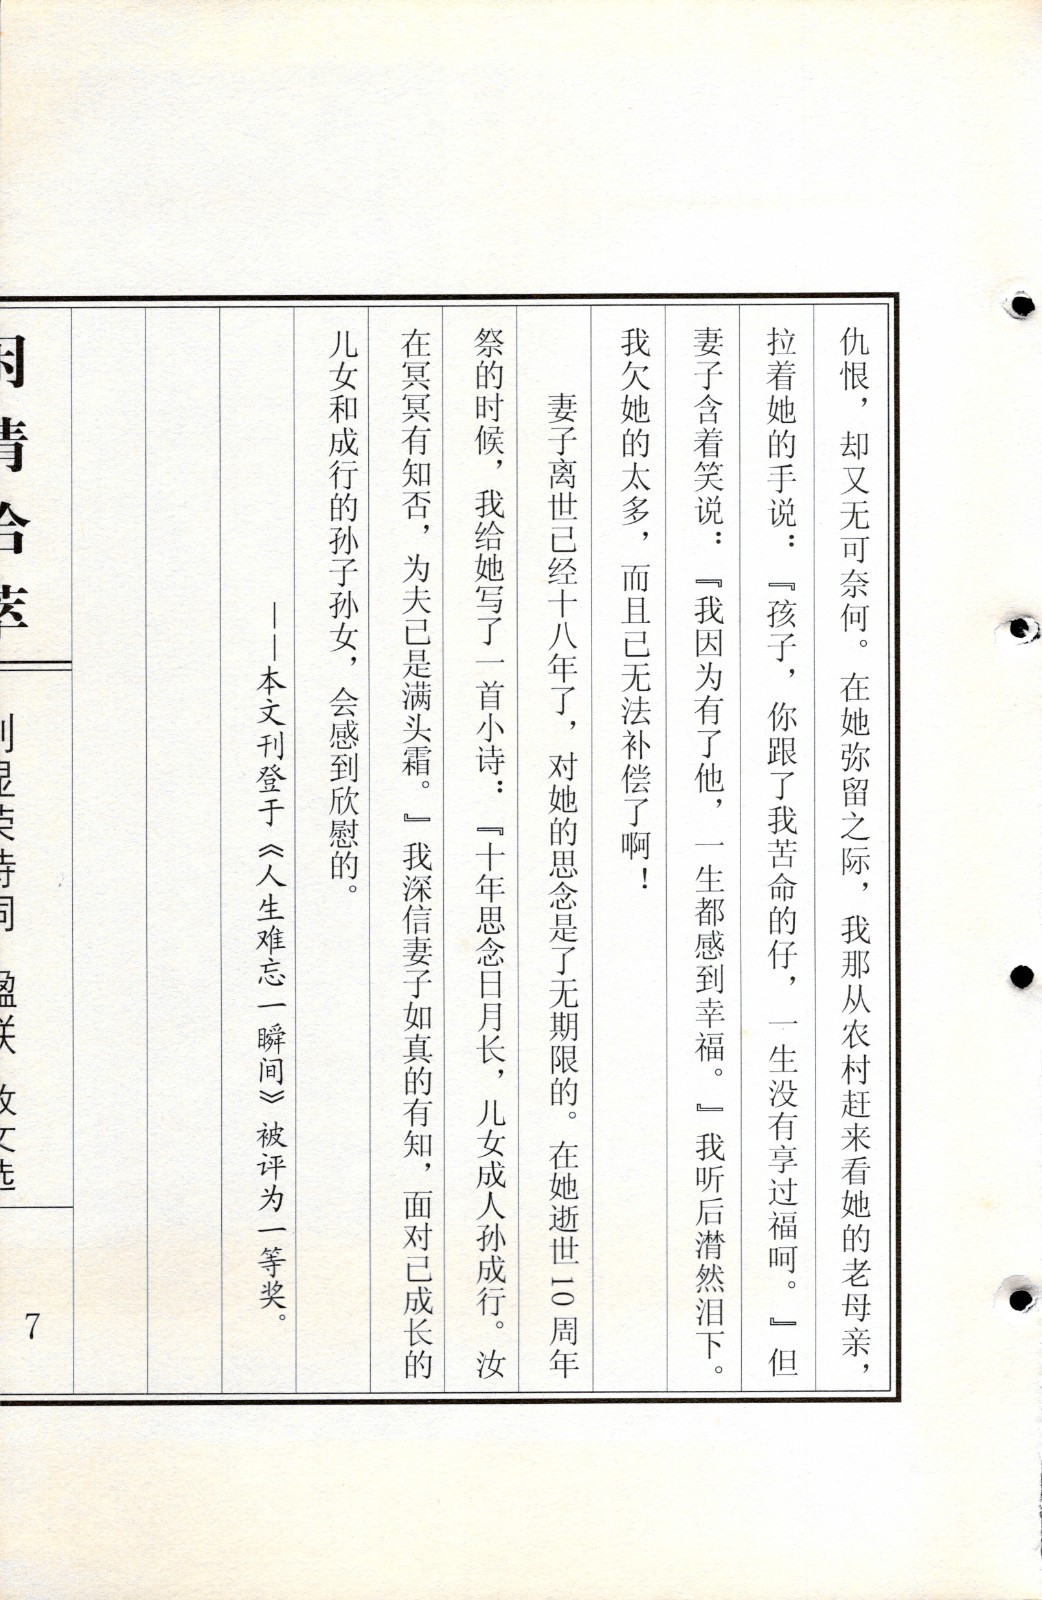 仇恨，却又无可奈何。在她弥留之际，我那从农村赶来看她的老母亲，
拉着她的手说：『孩子，你跟了我苦命的仔，一生没有享过福呵。』但
妻子含着笑说：『我因为有了他，一生都感到幸福。』我听后潸然泪下。
我欠她的太多，而且已无法补偿了啊！
妻子离世已经十八年了，对她的思念是了无期限的。在她逝世10周年
祭的时候，我给她写了一首小诗：『十年思念日月长，儿女成人孙成行。汝
在冥冥有知否，为夫已是满头霜。』我深信妻子如真的有知，面对己成长的
儿女和成行的孙子孙女，会感到欣慰的。
——本文刊登于《人生难忘一瞬间》被评为一等奖。
闲情拾萃
刘显荣诗词 楹联 散文选
7